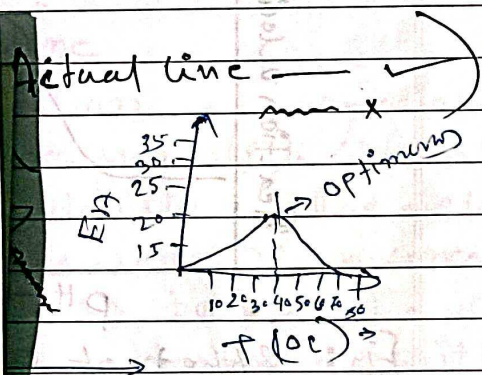 Actual line —— ✓
~~~ x
35
30
25
20
15
optimum
10 20 30 40 50 60 70 80
T (0c) →
PH